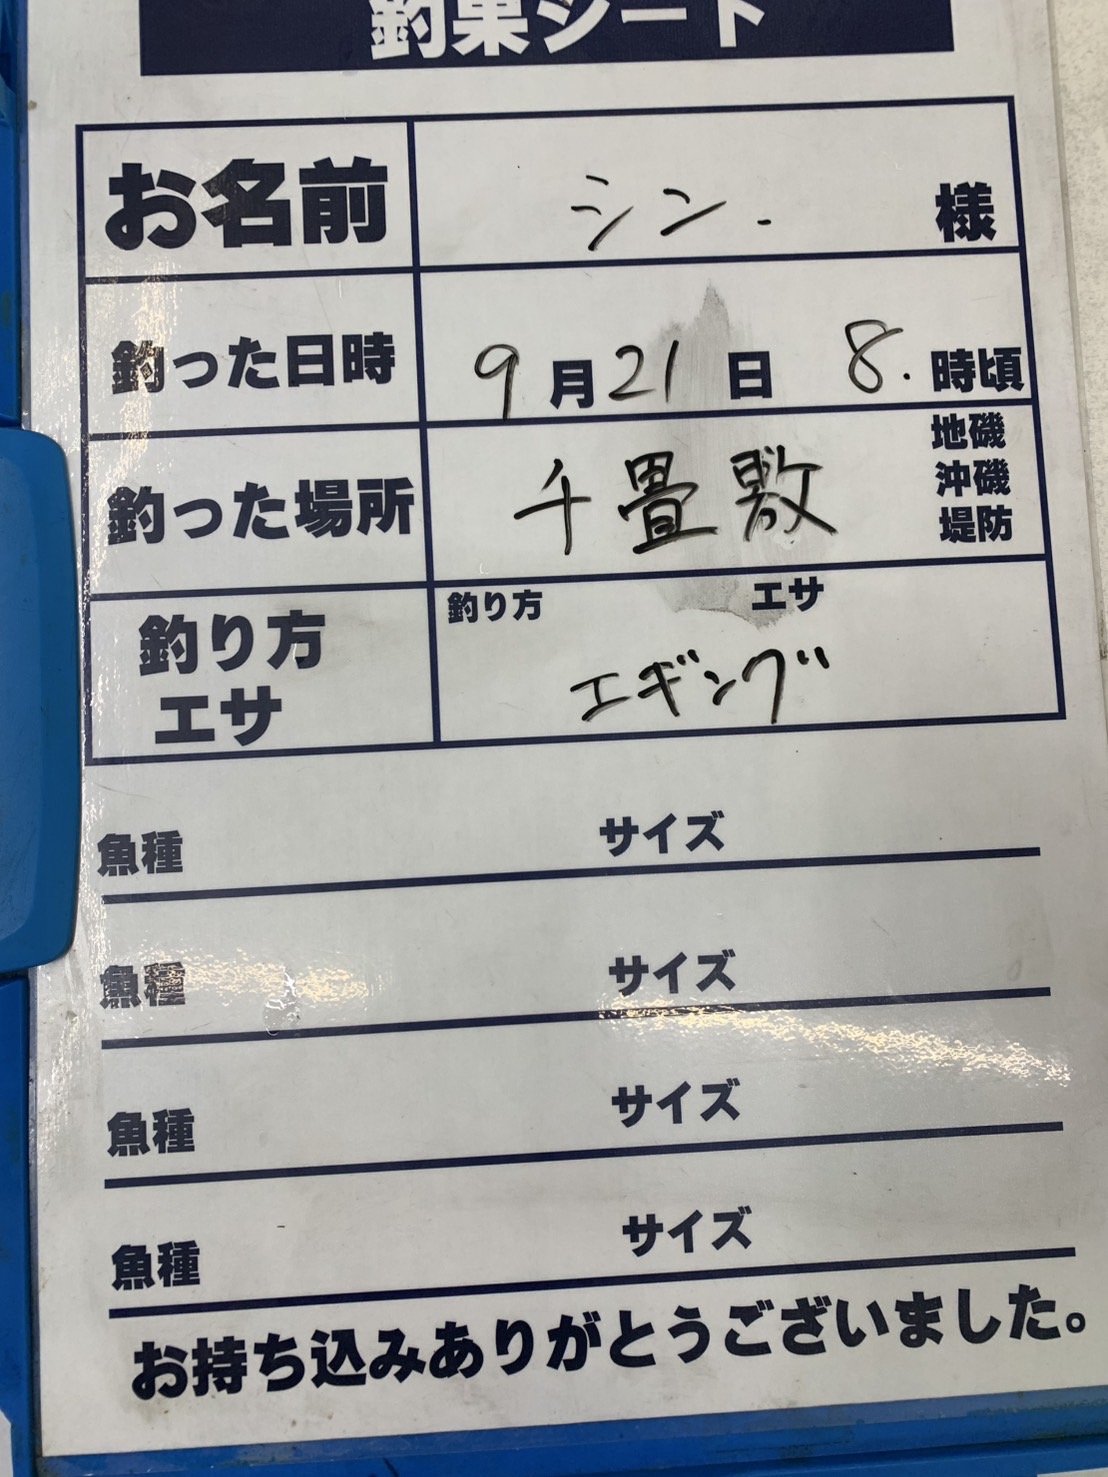 釣果シート
お名前 シン. 様
釣った日時 9月21日 8.時頃
釣った場所 千畳敷 地磯
沖磯
堤防
釣り方 エサ
釣り方 エサ
エギング
魚種 サイズ
魚種 サイズ
魚種 サイズ
魚種 サイズ
お持ち込みありがとうございました。